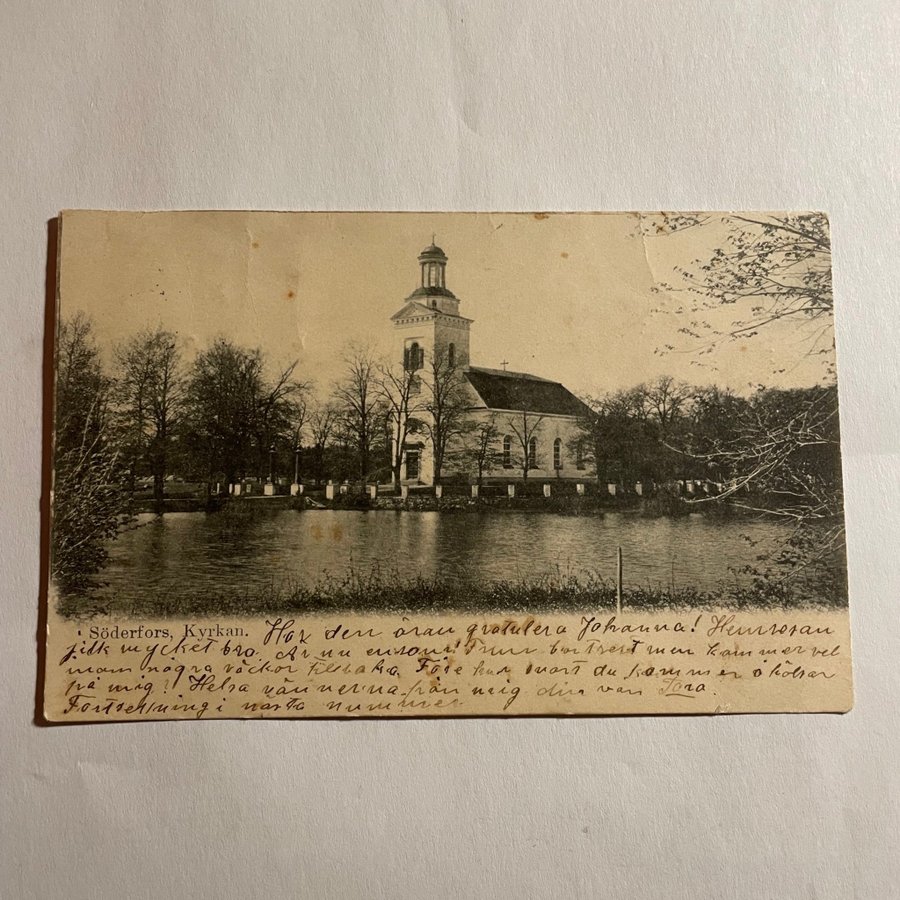 Söderfors, Kyrkan. Har den äran gratulera Johanna! Hemresan
gick mycket bra. Är nu ensam! Frun bortrest men kommer vel
inom några väckor tillbaka. Före har svart du kommer o hälsar
på mig?! Helsa vännerna från mig din vän Tora.
Fortsettning i nästa nummer